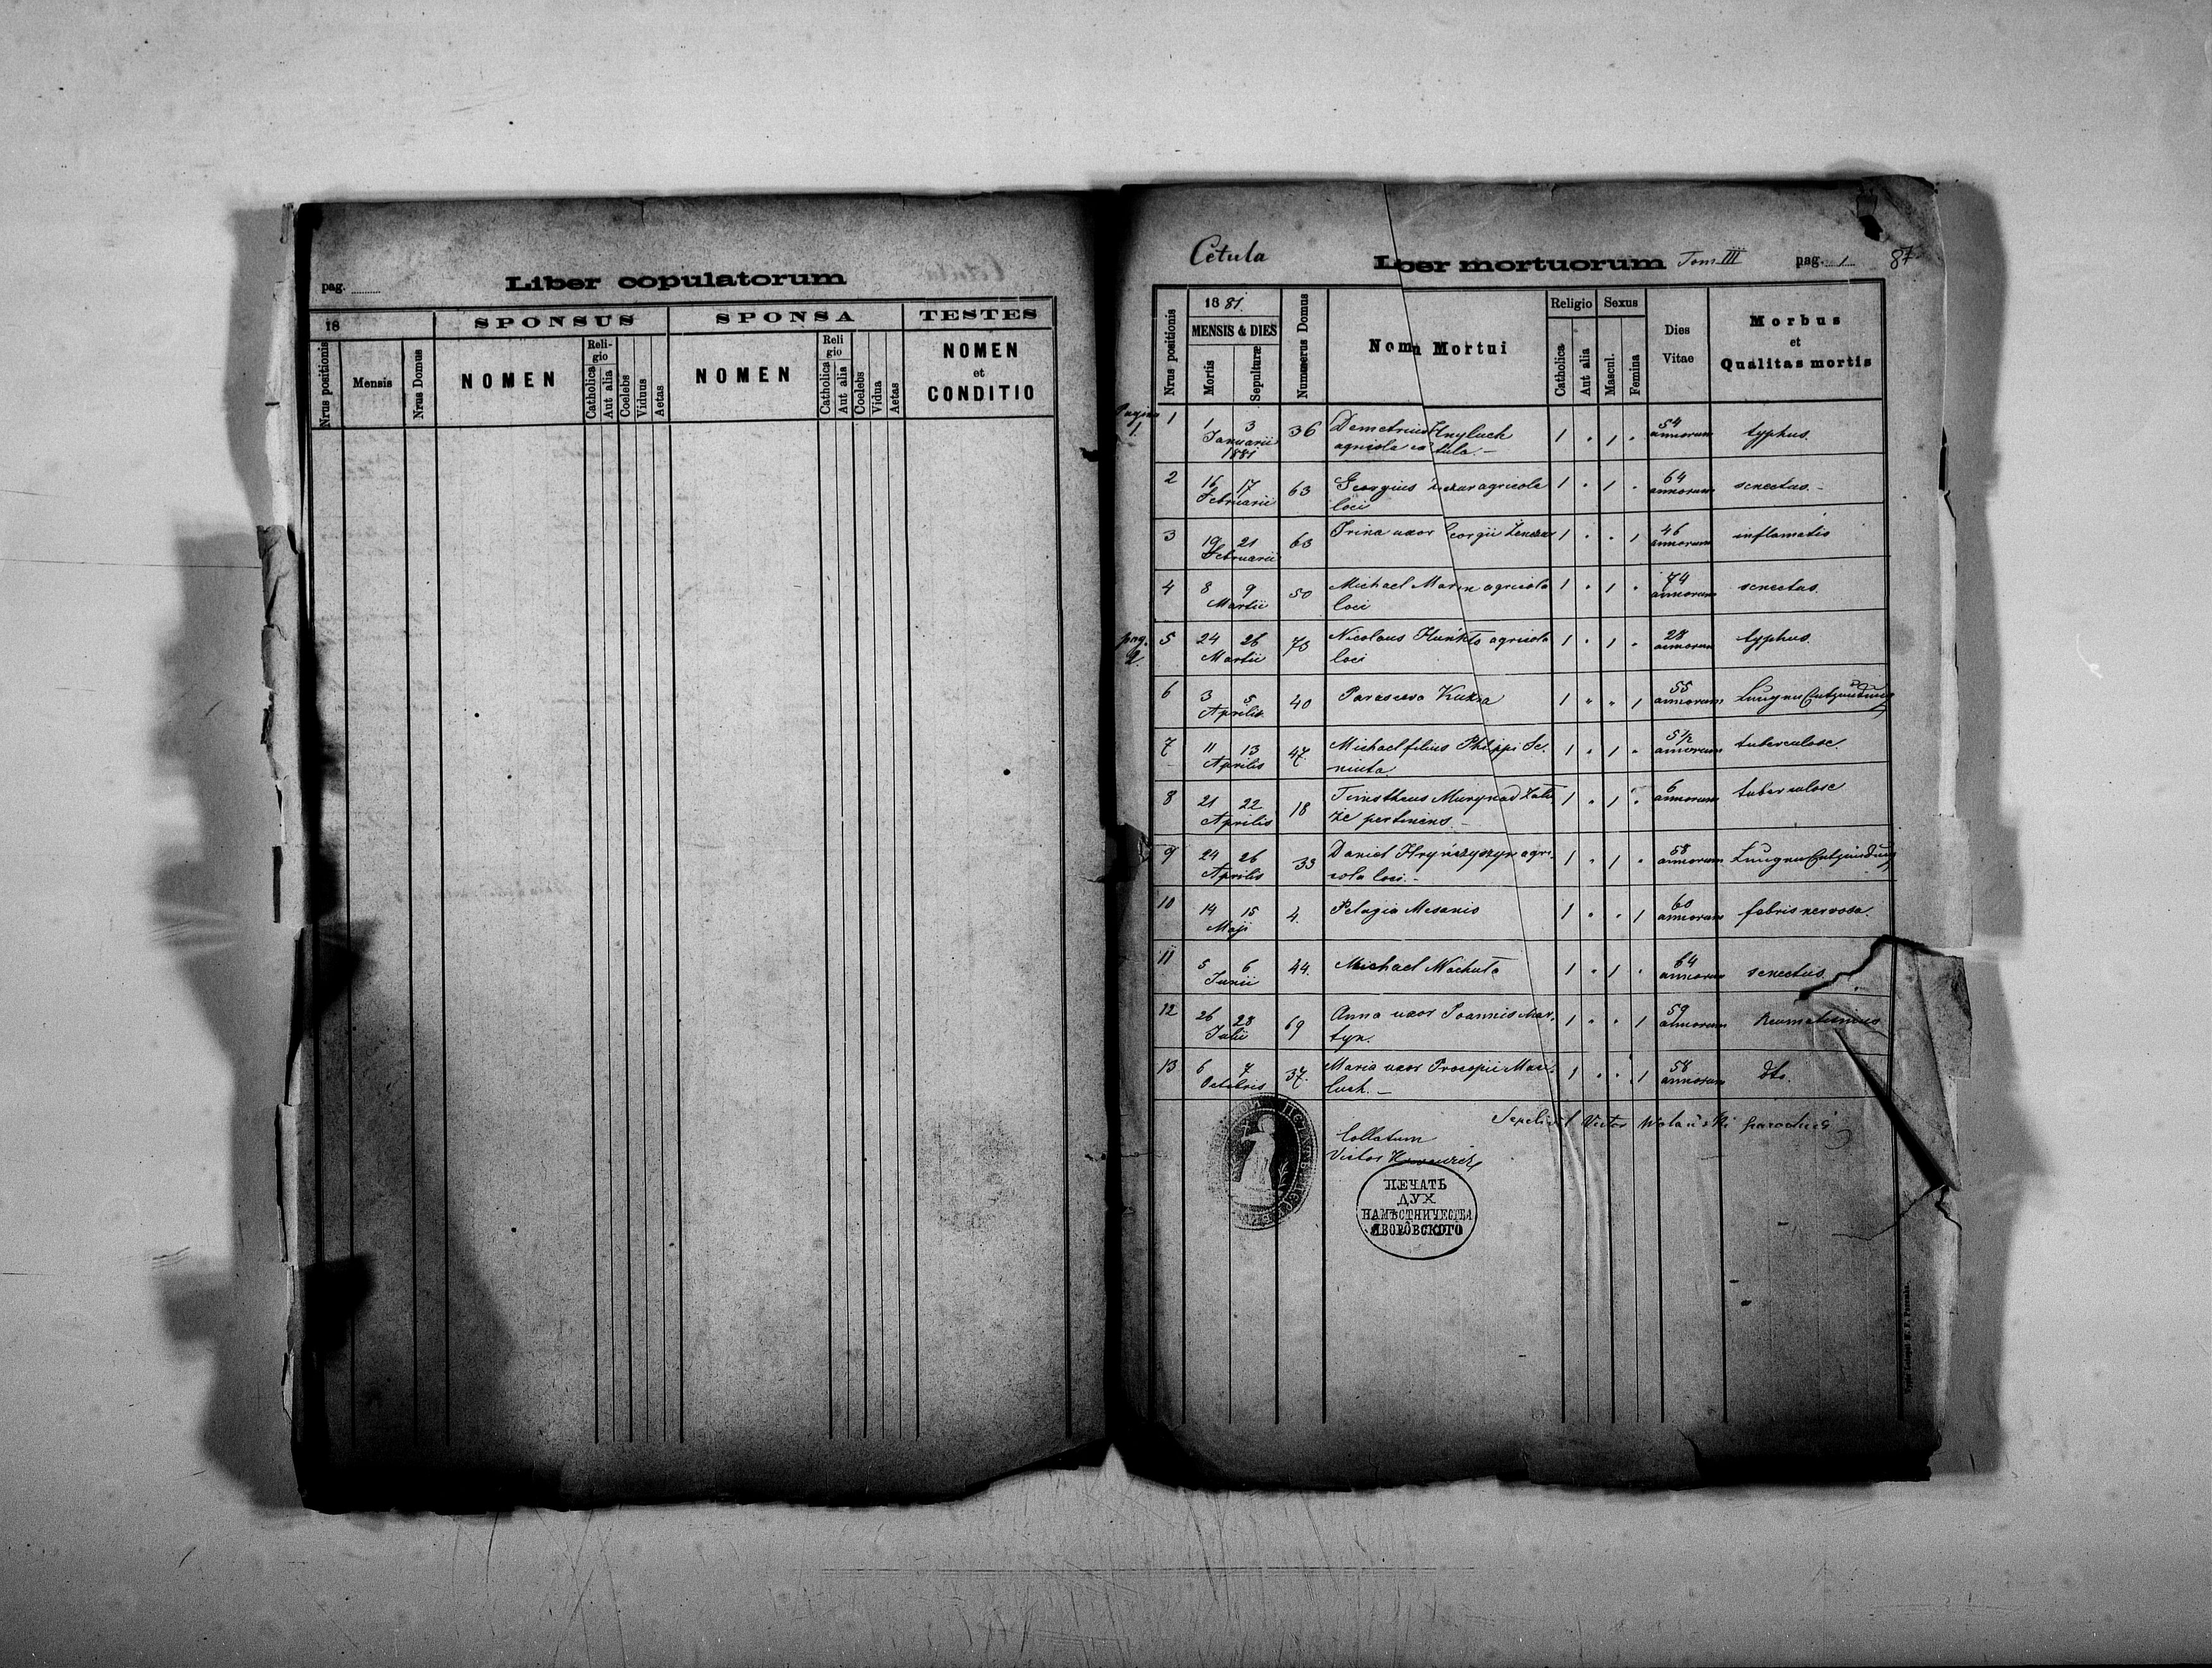 pag.
Liber copulatorum
18
SPONSUS
SPONSA
TESTES
Nrus positionis
Mensis
Nrus Domus
NOMEN
Reli-
gio
Catholica
Aut alia
Coelebs
Viduus
Aetas
NOMEN
Reli
gio
Catholica
Aut alia
Coelebs
Vidua
Aetas
NOMEN
et
CONDITIO
Cetula
Liber mortuorum Tom III pag. 1 87
Nrus positionis
1881.
MENSIS & DIES
Mortis
Sepulturæ
Numerus Domus
Nomen Mortui
Religio
Catholica
Aut alia
Sexus
Mascul.
Femina
Dies
Vitae
Morbus
et
Qualitas mortis
Pagina
1.
1 1 3 36 Demetrius Hnyluch 1 " 1 " 54 typhus.
Januarii agricola annorum
1881
2 16 17 63 Georgius agricola 1 " 1 " 64 senectus.-
Februarii loci annorum
3 19 21 63 Irina uxor Georgii 1 " " 1 46 inflamatio
Februarii annorum
4 8 9 50 Michael agricola 1 " 1 " 74 senectus.
Martii loci annorum
pag.
2
5 24 26 73 Nicolaus agricola 1 " 1 " 28 typhus.
Martii loci annorum
6 3 5 40 Parasceva 1 " " 1 55 Lungen Entzündung
Aprilis annorum
7 11 13 47 Michael filius Philippi Se- 1 " 1 " 5½ tuberculose.
Aprilis niuta annorum
8 21 22 18 Timotheus 1 " 1 " 6 tuberculose
Aprilis pertinens annorum
9 24 26 33 Daniel Hryńczyszyn agri- 1 " 1 " 58 Lungen Entzündung
Aprilis cola loci.- annorum
10 14 15 4. Pelagia Mesanis 1 " " 1 60 febris nervosa.
Maji annorum
11 5 6 44. Michael Machuta 1 " 1 " 64 senectus.
Junii annorum
12 26 28 69 Anna uxor Joannis Mar- 1 " " 1 59 Reumatismus
Julii tyn. annorum
13 6 7 37. Maria uxor Procopii 1 " " 1 58 dto.
Octobris annorum
Sepelivit Victor Wolański parochus
Collatum
Victor
ПЕЧАТЬ
ДУХ
НАМѢСТНИЧЕСТВА
ЯВОРÔВСКОГО